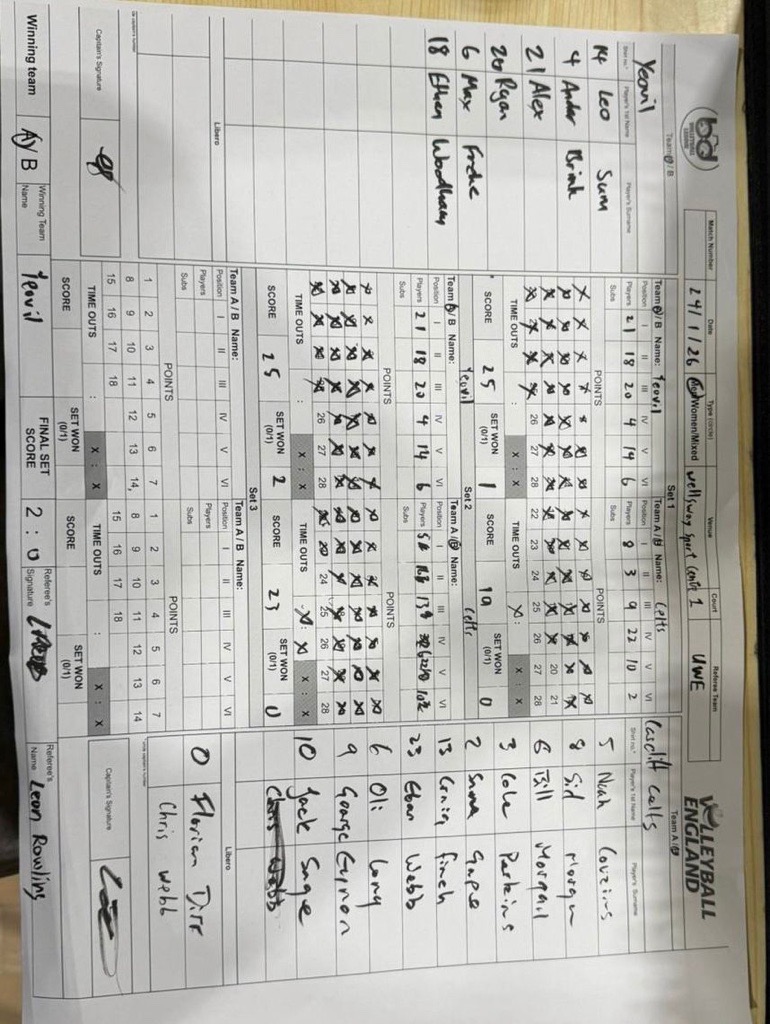 bd
VOLLEYBALL ENGLAND
Match Number Date Type (circle) Venue Court Referee Team
24/1/26 Men/Women/Mixed Wellsway Sport Centre 1 UWE
Team A / B
Yeovil
Shirt no.* Player's 1st Name Player's Surname
14 Leo Sum
4 Andor Brink
21 Alex
20 Ryan
6 Max Froche
18 Ethan Woodham
Libero
*circle captain's number
Captain's Signature
Set 1
Team A / B Name: Yeovil
Position I II III IV V VI
Players 21 18 20 4 14 6
Subs
POINTS
26 27 28
TIME OUTS : X : X
SCORE 25 SET WON (0/1) 1
Team A / B Name: Celts
Position I II III IV V VI
Players 8 3 9 22 10 2
Subs
POINTS
20 21
22 23 24 25 26 27 28
TIME OUTS X : X : X
SCORE 19 SET WON (0/1) 0
Set 2
Team A / B Name: Yeovil
Position I II III IV V VI
Players 21 18 20 4 14 6
Subs
POINTS
26 27 28
TIME OUTS : X : X
SCORE 25 SET WON (0/1) 2
Team A / B Name: Celts
Position I II III IV V VI
Players
Subs
POINTS
24 25 26 27 28
TIME OUTS X : X : X
SCORE 23 SET WON (0/1) 0
Set 3
Team A / B Name:
Position I II III IV V VI
Players
Subs
POINTS
1 2 3 4 5 6 7
8 9 10 11 12 13 14,
15 16 17 18
TIME OUTS : X : X
SCORE SET WON (0/1)
Team A / B Name:
Position I II III IV V VI
Players
Subs
POINTS
1 2 3 4 5 6 7
8 9 10 11 12 13 14
15 16 17 18
TIME OUTS : X : X
SCORE SET WON (0/1)
Team A / B
Cardiff Celts
Shirt no.* Player's 1st Name Player's Surname
5 Noah Cousins
8 Sid Morgan
6 Bill Morgan
3 Cole Perkins
2 Gape
13 Craig Finch
23 Eban Webb
6 Oli Long
9 George Gynon
10 Jack Sage
Chris Webb
Libero
0 Florian Dirr
Chris Webb
*circle captain's number
Captain's Signature
Winning team A / B Winning Team Name Yeovil FINAL SET SCORE 2 : 0 Referee's Signature Referee's Name Leon Rowling